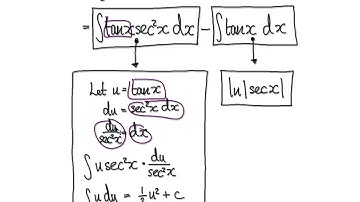 = ∫tanx sec²x dx - ∫tanx dx
Let u = tanx
du = sec²x dx
du/sec²x = dx
∫u sec²x · du/sec²x
∫u du = ½u² + c
ln|secx|